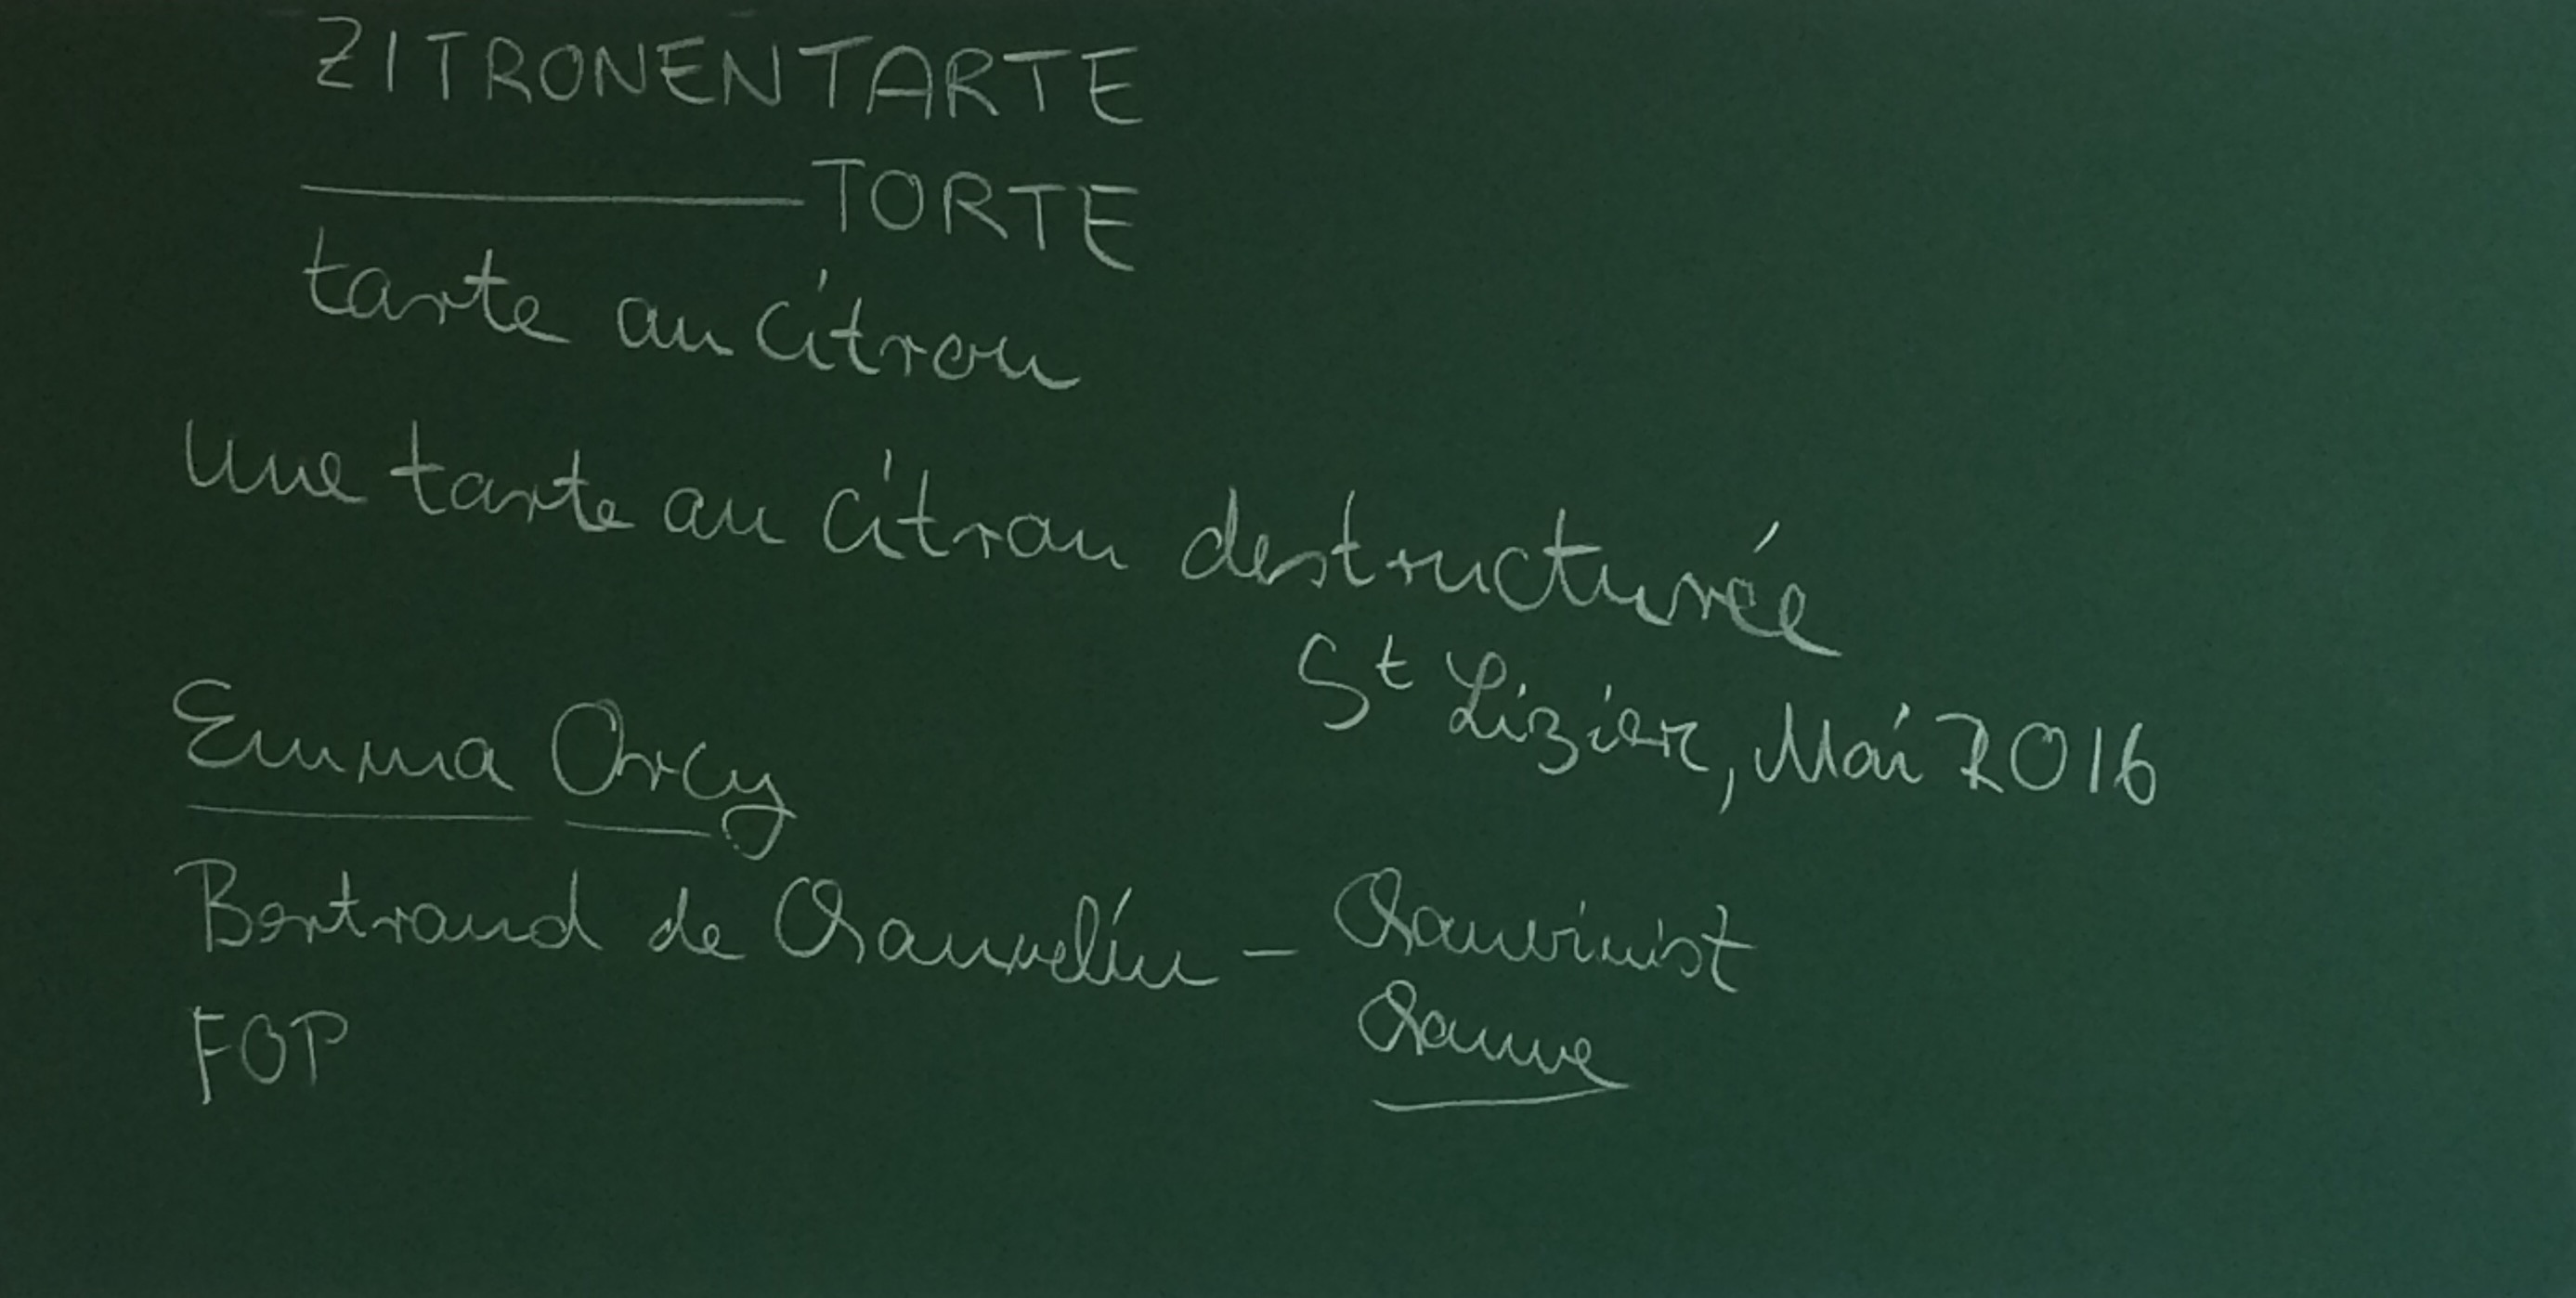 ZITRONENTARTE
——— TORTE
tarte au citron
Une tarte au citron destructurée
St Lizier, Mai 2016
Emma Orcy
Bertrand de Chauvelin – Chauvinist
Chauve
FOP